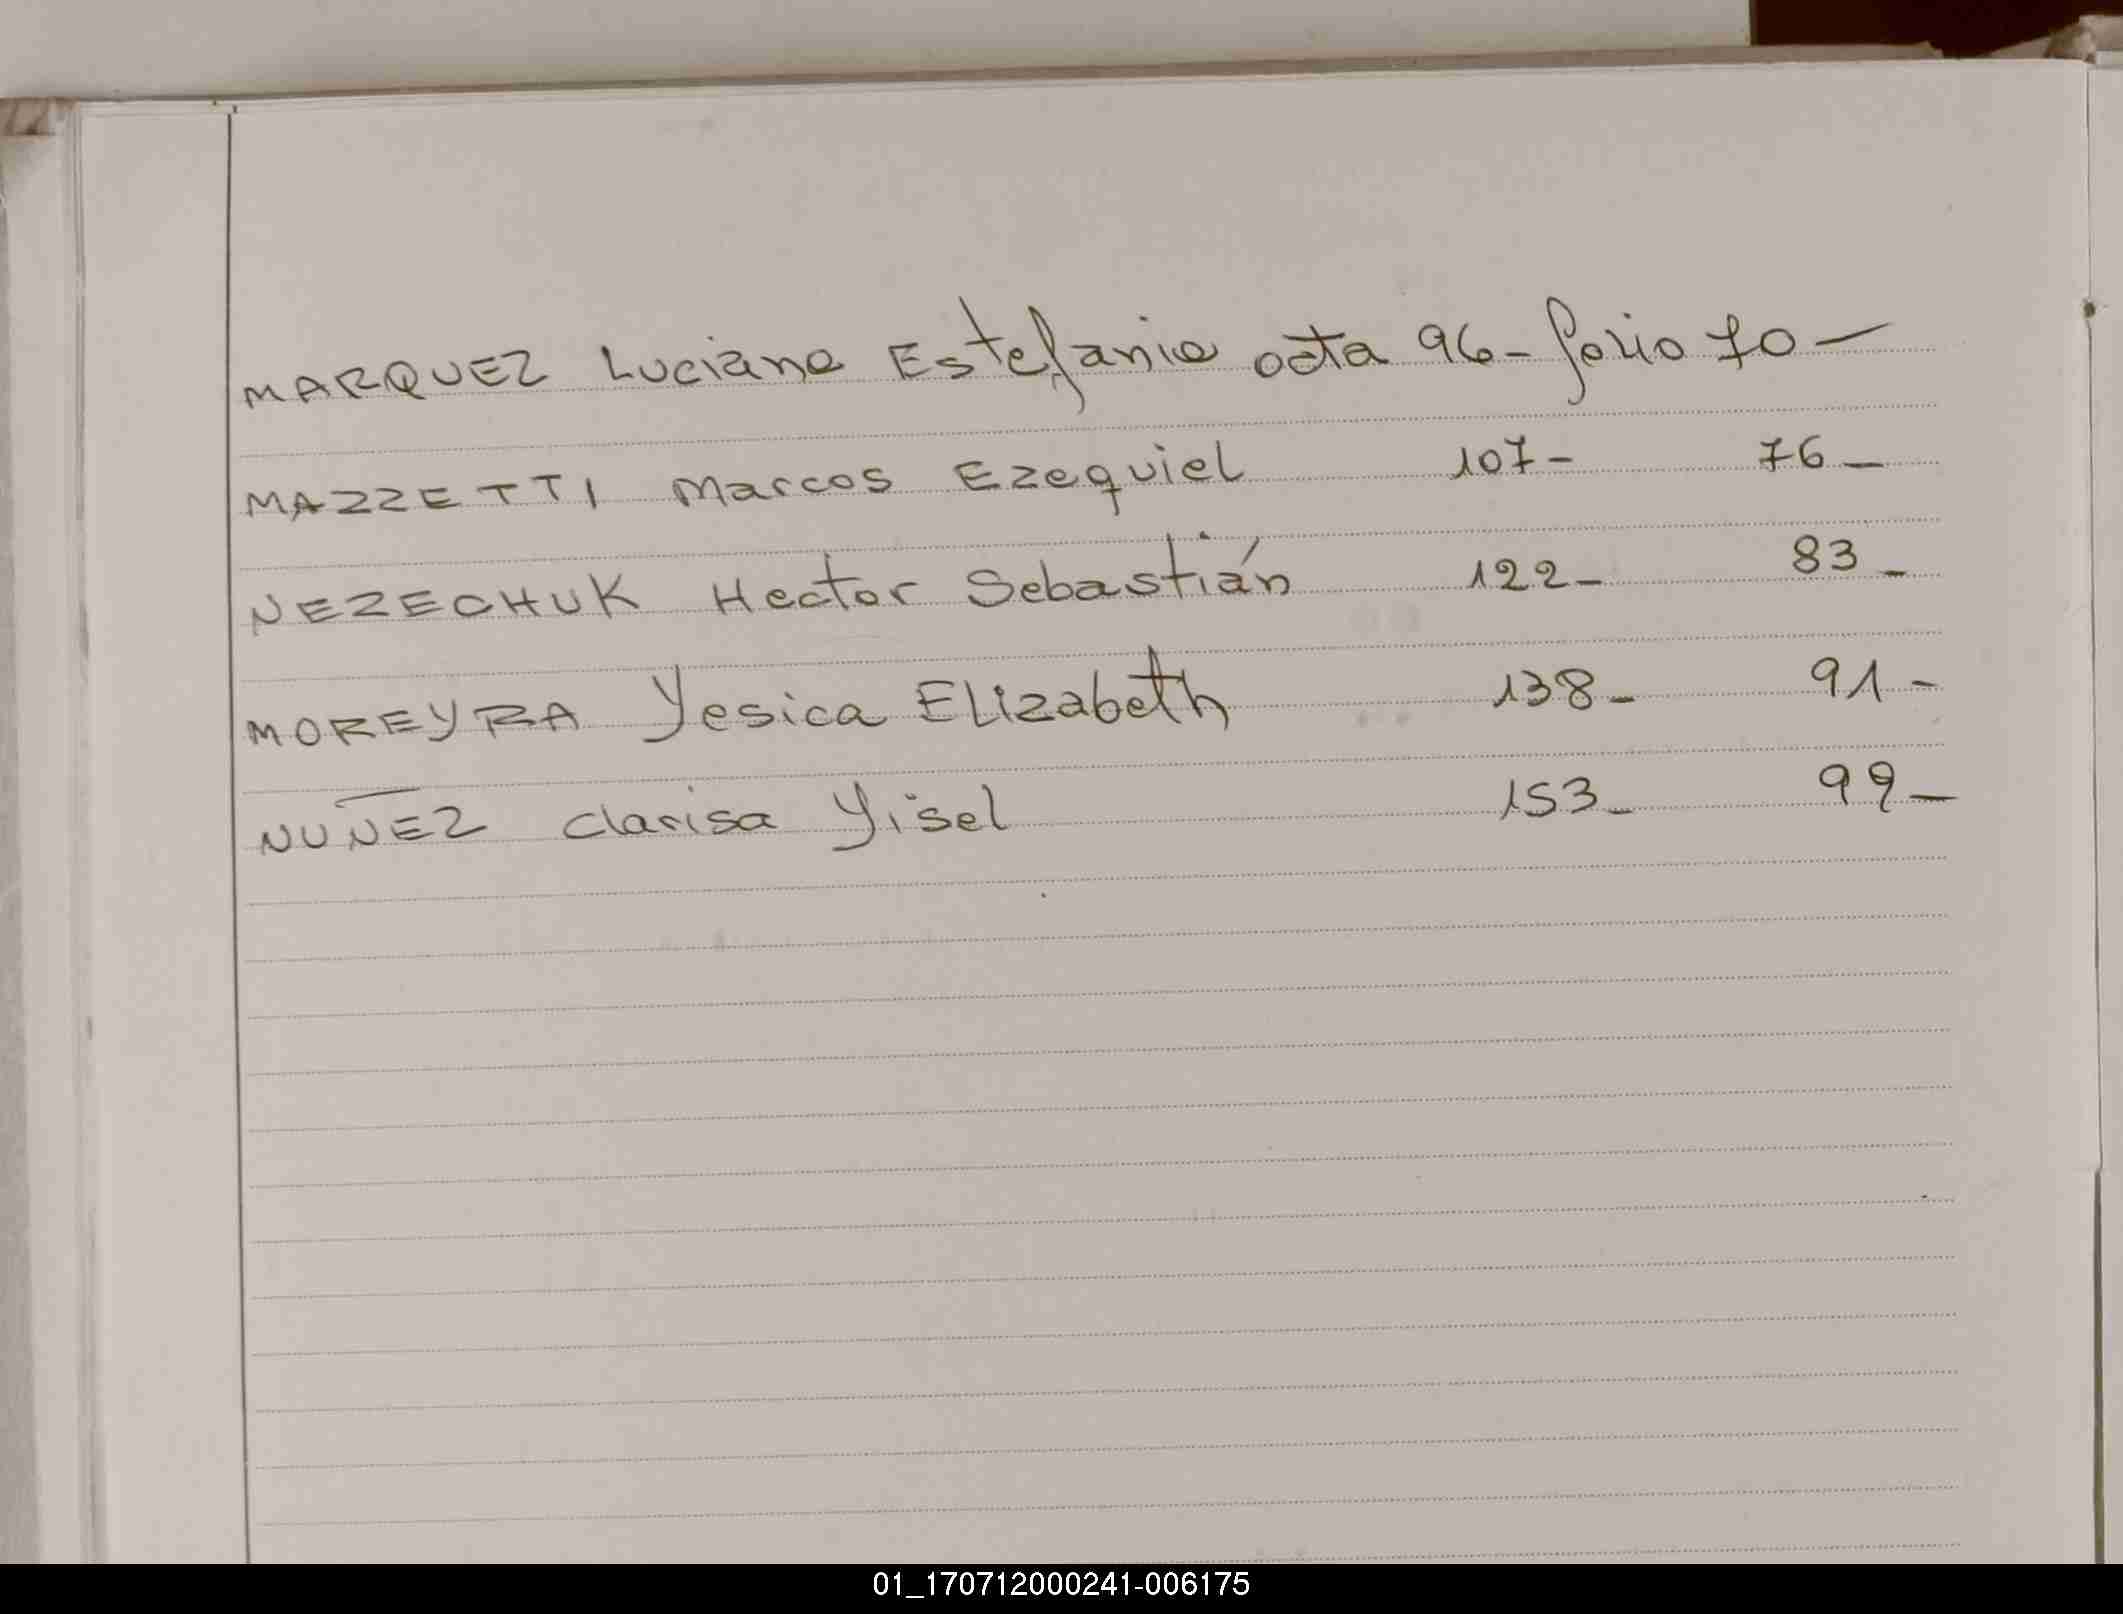 MARQUEZ Luciana Estefania acta 96- folio 70-
MAZZETTI Marcos Ezequiel 107- 76-
NEZECHUK Hector Sebastián 122- 83-
MOREYRA Yesica Elizabeth 138- 91-
NUÑEZ Clarisa Yisel 153- 99-
01_170712000241-006175